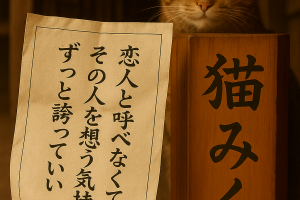 恋人と呼べなくて
その人を想う気持
ずっと誇っていい
猫みく